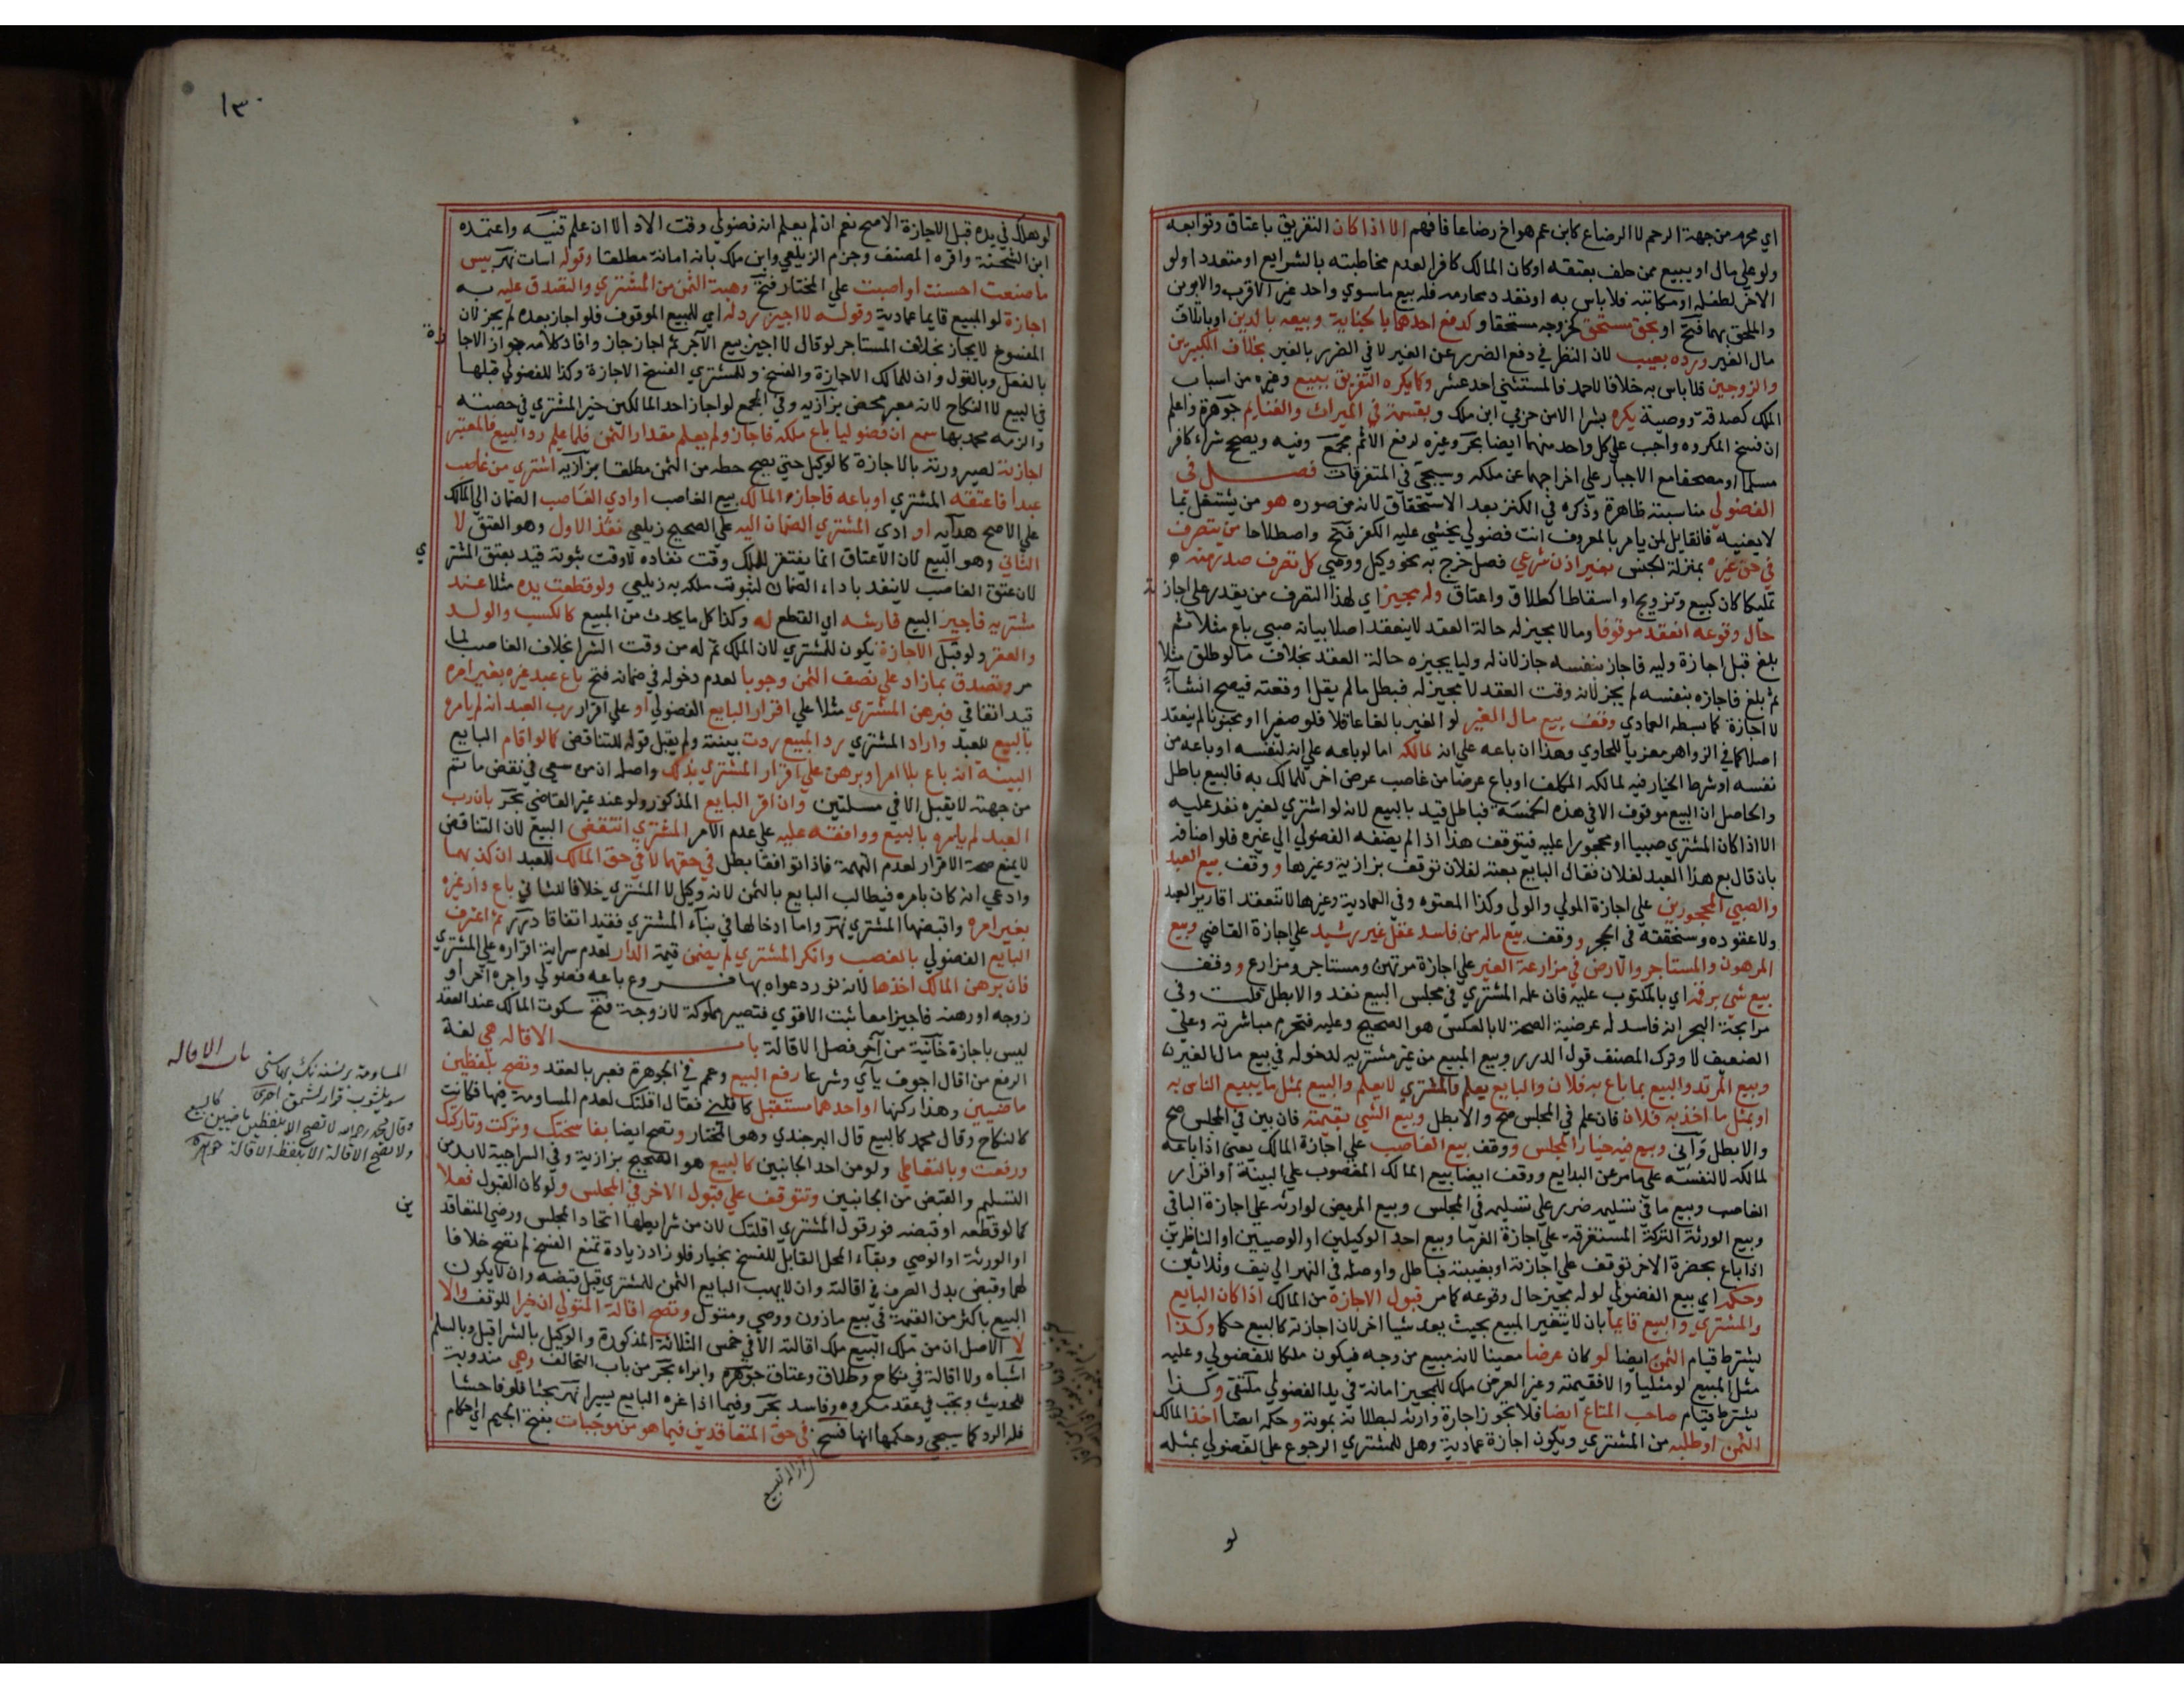 اي محرمه من جهة الرحم لا الرضاع كابن عم هو اخ رضاعا فافهم الا اذا كان التفريق باعتاق وتوابعه
ولو علي مال او يبيع ممن حلف بعتقه او كان المالك كافرا لعدم مخاطبته بالشرايع او متعددا ولو
الاخر لطفله او مكاتبه فلا باس به او تعدد محارمه فله بيع ما سوي واحد غير الاقرب والابوين
والملحق بهما فتح او بحق مستحق كخروجه مستحقا وكدفع احدهما بالجناية وبيعه بالدين او باتلاف
مال الغير ورده بعيب لان النظر في دفع الضرر عن الغير لا في الضرر بالغير بخلاف الكبيرين
والزوجين فلا باس به خلافا لاحمد فالمستثني احد عشر وكما يكره التفريق ببيع وغيره من اسباب
الملك كصدقة ووصية يكره بشرا الا من حربي ابن ملك وبقسمة في الميراث والغنايم جوهرة واعلم
ان فسخ المكروه واجب علي كل واحد منهما ايضا بحر وغيره لرفع الاثم مجمع وفيه ويصح شراء كافر
مسلما او مصحفا مع الاجبار علي اخراجهما عن ملكه وسيجئ في المتفرقات فصل في
الفضولي مناسبته ظاهرة وذكره في الكنز بعد الاستحقاق لانه من صوره هو من يشتغل بما
لا يعنيه فالقايل لمن يامر بالمعروف انت فضولي يخشي عليه الكفر فتح واصطلاحا من يتصرف
في حق غيره بمنزلة الجنس بغير اذن شرعي فصل خرج به نحو وكيل ووصي كل تصرف صدر منه
تمليكا كان كبيع وتزويج او اسقاطا كطلاق واعتاق وله مجيز اي لهذا التصرف من يقدر علي اجازته
حال وقوعه انعقد موقوفا وما لا مجيز له حالة العقد لا ينعقد اصلا بيانه صبي باع مثلا ثم
بلغ قبل اجازة وليه فاجاز بنفسه جاز لان له وليا يجيزه حالة العقد بخلاف ما لو طلق مثلا
ثم بلغ فاجازه بنفسه لم يجز لانه وقت العقد لا مجيز له فبطل ما لم يقل اوقعته فيصح انشاءً
لا اجازة كما بسطه العمادي وقف بيع مال الغير لو الغير بالغا عاقلا فلو صغيرا او مجنونا لم ينعقد
اصلا كما في الزواهر معزيا للحاوي وهذا ان باعه علي انه لمالكه اما لو باعه علي انه لنفسه او باعه من
نفسه او شرط الخيار فيه لمالكه المكلف او باع عرضا من غاصب عرض اخر للمالك به فالبيع باطل
والحاصل ان البيع موقوف الا في هذه الخمسة فباطل قيد بالبيع لانه لو اشتري لغيره نفد عليه
الا اذا كان المشتري صبيا او محجورا عليه فيتوقف هذا اذا لم يضفه الفضولي الي غيره فلو اضافه
بان قال بع هذا العبد لفلان فقال البايع بعته لفلان توقف بزازية وغيرها ووقف بيع العبد
والصبي المحجورين علي اجازة المولي والولي وكذا المعتوه وفي العمادية وغيرها لا تنعقد اقارير العبد
ولا عقوده وسنحققه في الحجر ووقف بيع ماله من فاسد عقل غير رشيد علي اجازة القاضي وبيع
المرهون والمستاجر والارض في مزارعة الغير علي اجازة مرتهن ومستاجر ومزارع ووقف
بيع شئ برقمه اي بالمكتوب عليه فان علمه المشتري في مجلس البيع نفد والا بطل قلت وفي
مرابحة البحر انه فاسد له عرضية الصحة لا بالعكس هو الصحيح وعليه فتحرم مباشرته وعلي
الضعيف لا وترك المصنف قول الدرر وبيع المبيع من غير مشتريه لدخوله في بيع مال الغير
وبيع المرتد والبيع بما باع به فلان والبايع يعلم والمشتري لا يعلم والبيع بمثل ما يبيع الناس به
او بمثل ما اخذ به فلان فان علم في المجلس صح والا بطل وبيع الشئ بقيمته فان بين في المجلس صح
والا بطل وبيع فيه خيار المجلس ووقف بيع الغاصب علي اجازة المالك يعني اذا باعه
لمالكه لا لنفسه علي ما مر عن البدايع ووقف ايضا بيع المالك المغصوب علي البينة او اقرار
الغاصب وبيع ما في تسليمه ضرر علي تسليمه في المجلس وبيع المريض لوارثه علي اجازة الباقي
وبيع الورثة التركة المستغرقة علي اجازة الغرما وبيع احد الوكيلين او الوصيين او الناظرين
اذا باع بحضرة الاخر توقف علي اجازته او بغيبته فباطل واوصله في النهر الي نيف وثلاثين
وحكمه اي بيع الفضولي لو له مجيز حال وقوعه كما مر قبول الاجازة من المالك اذا كان البايع
والمشتري والمبيع قايما بان لا يتغير المبيع بحيث يعد شيا اخر لان اجازته كالبيع حكما وكذا
يشترط قيام الثمن ايضا لو كان عرضا معينا لانه مبيع من وجه فيكون ملكا للفضولي وعليه
مثل المبيع لو مثليا والا فقيمته وغير العرض ملك للمجيز امانة في يد الفضولي ملتقي وكذا
يشترط قيام صاحب المتاع ايضا فلا تجوز اجازة وارثه لبطلانه بموته وحكمه ايضا اخذ المالك
الثمن او طلبه من المشتري ويكون اجازة عمادية وهل للمشتري الرجوع علي الفضولي بمثله
لو
١٣٠
لو هلك في يده قبل الاجازة الاصح نعم ان لم يعلم انه فضولي وقت الادا لا ان علم قنيه واعتمده
ابن الشحنة واقره المصنف وجزم الزيلعي وابن ملك بانه امانة مطلقا وقوله اسات نهر بيس
ما صنعت احسنت او اصبت علي المختار فتح وهبة الثمن من المشتري والتصدق عليه به
اجازة لو المبيع قايما عمادية وقوله لا اجيز رد له اي للبيع الموقوف فلو اجاز بعده لم يجز لان
المفسوخ لا يجاز بخلاف المستاجر لو قال لا اجيز بيع الآجر ثم اجاز جاز وافاد كلامه جواز الاجازة
بالفعل وبالقول وان للمالك الاجازة والفسخ وللمشتري الفسخ لا الاجازة وكذا للفضولي قبلها
في البيع لا النكاح لانه معبر محض بزازيه وفي المجمع لو اجاز احد المالكين خير المشتري في حصته
والزمه محمد بها سمع ان فضوليا باع ملكه فاجاز ولم يعلم مقدار الثمن فلما علم رد البيع فالمعتبر
اجازته لصيرورته بالاجازة كالوكيل حتي يصح حطه من الثمن مطلقا بزازيه اشتري من غاصب
عبدا فاعتقه المشتري او باعه فاجاز المالك بيع الغاصب او ادي الغاصب الضمان الي المالك
علي الاصح هدايه او ادي المشتري الضمان اليه علي الصحيح زيلعي نفذ الاول وهو العتق لا
الثاني وهو البيع لان الاعتاق انما يفتقر للملك وقت نفاده لا وقت ثبوته قيد بعتق المشتري
لان عتق الغاصب لا ينفد باداء الضمان لثبوت ملكه به زيلعي ولو قطعت يده مثلا عند
مشتريه فاجيز البيع فارشه اي القطع له وكذا كل ما يحدث من المبيع كالكسب والولد
والعقر ولو قبل الاجازة يكون للمشتري لان الملك تم له من وقت الشرا بخلاف الغاصب لما
مر وتصدق بما زاد علي نصف الثمن وجوبا لعدم دخوله في ضمانه فتح باع عبد غيره بغير امره
قيد اتفاقي فبرهن المشتري مثلا علي اقرار البايع الفضولي او علي اقرار رب العبد انه لم يامره
بالبيع للعبد واراد المشتري رد المبيع ردت بينته ولم يقبل قوله للتناقض كما لو اقام البايع
البينة انه باع بلا امر او برهن علي اقرار المشتري بذلك واصله ان من سعي في نقض ما تم
من جهته لا يقبل الا في مسلتين وان اقر البايع المذكور ولو عند غير القاضي بحر بان رب
العبد لم يامره بالبيع ووافقه عليه علي عدم الامر المشتري انتقض البيع لان التناقض
لا يمنع صحة الاقرار لعدم التهمة فاذا توافقا بطل في حقهما لا في حق المالك للعبد ان كذبهما
وادعي انه كان بامره فيطالب البايع بالثمن لانه وكيل لا المشتري خلافا للثاني باع دار غيره
بغير امره واقبضها المشتري نهر واما ادخالها في بناء المشتري فقيد اتفاقا درر ثم اعترف
البايع الفضولي بالغصب وانكر المشتري لم يضمن قيمة الدار لعدم سراية اقراره علي المشتري
فان برهن المالك اخذها لانه نور دعواه بها فروع باعه فضولي واجره اخر او
زوجه او رهنه فاجيزا معا ثبت الاقوي فتصير مملوكة لا زوجة فتح سكوت المالك عند العقد
ليس باجازة خانية من آخر فصل الاقالة باب الاقاله هي لغة
الرفع من اقال اجوف يآي وشرعا رفع البيع وعمم في الجوهرة فعبر بالعقد وتصح بلفظين
ماضيين وهذا ركنها او احدهما مستقبل كاقلني فقال اقلتك لعدم المساومة فيها فكانت
كالنكاح وقال محمد كالبيع قال البرجندي وهو المختار وتصح ايضا بفاسختك وتركت وتاركتك
ورفعت وبالتعاطي ولو من احد الجانبين كالبيع هو الصحيح بزازية وفي السراجية لا بد من
التسليم والقبض من الجانبين وتتوقف علي قبول الاخر في المجلس ولو كان القبول فعلا
كما لو قطعه او قبضه فور قول المشتري اقلتك لان من شرايطها اتحاد المجلس ورضي المتعاقدين
او الورثة او الوصي وبقاء المحل القابل للفسخ بخيار فلو زاد زيادة تمنع الفسخ لم تصح خلافا
لهما وقبض بدل الصرف في اقالته وان لا يهب البايع الثمن للمشتري قبل قبضه وان لا يكون
البيع باكثر من القيمة في بيع ماذون ووصي ومتول وتصح اقالة المتولي ان خيرا للوقف والا
لا الاصل ان من ملك البيع ملك اقالته الا في خمس الثلاثة المذكورة والوكيل بالشرا قبل وبالسلم
اشباه ولا اقالة في نكاح وطلاق وعتاق جوهرة وابراء بحر من باب التحالف وهي مندوبة
للحديث وتجب في عقد مكروه وفاسد بحر وفيما اذا غره البايع يسيرا نهر بحثا فلو فاحشا
فله الرد كما سيجي وحكمها انها فسخ في حق المتعاقدين فيما هو من موجبات بفتح الجيم اي احكام
باب الاقاله
وقال محمد رحمه الله لا تصح الا بلفظين ماضيين كالبيع
ولا تصح الاقالة الا بلفظ الاقالة جوهره